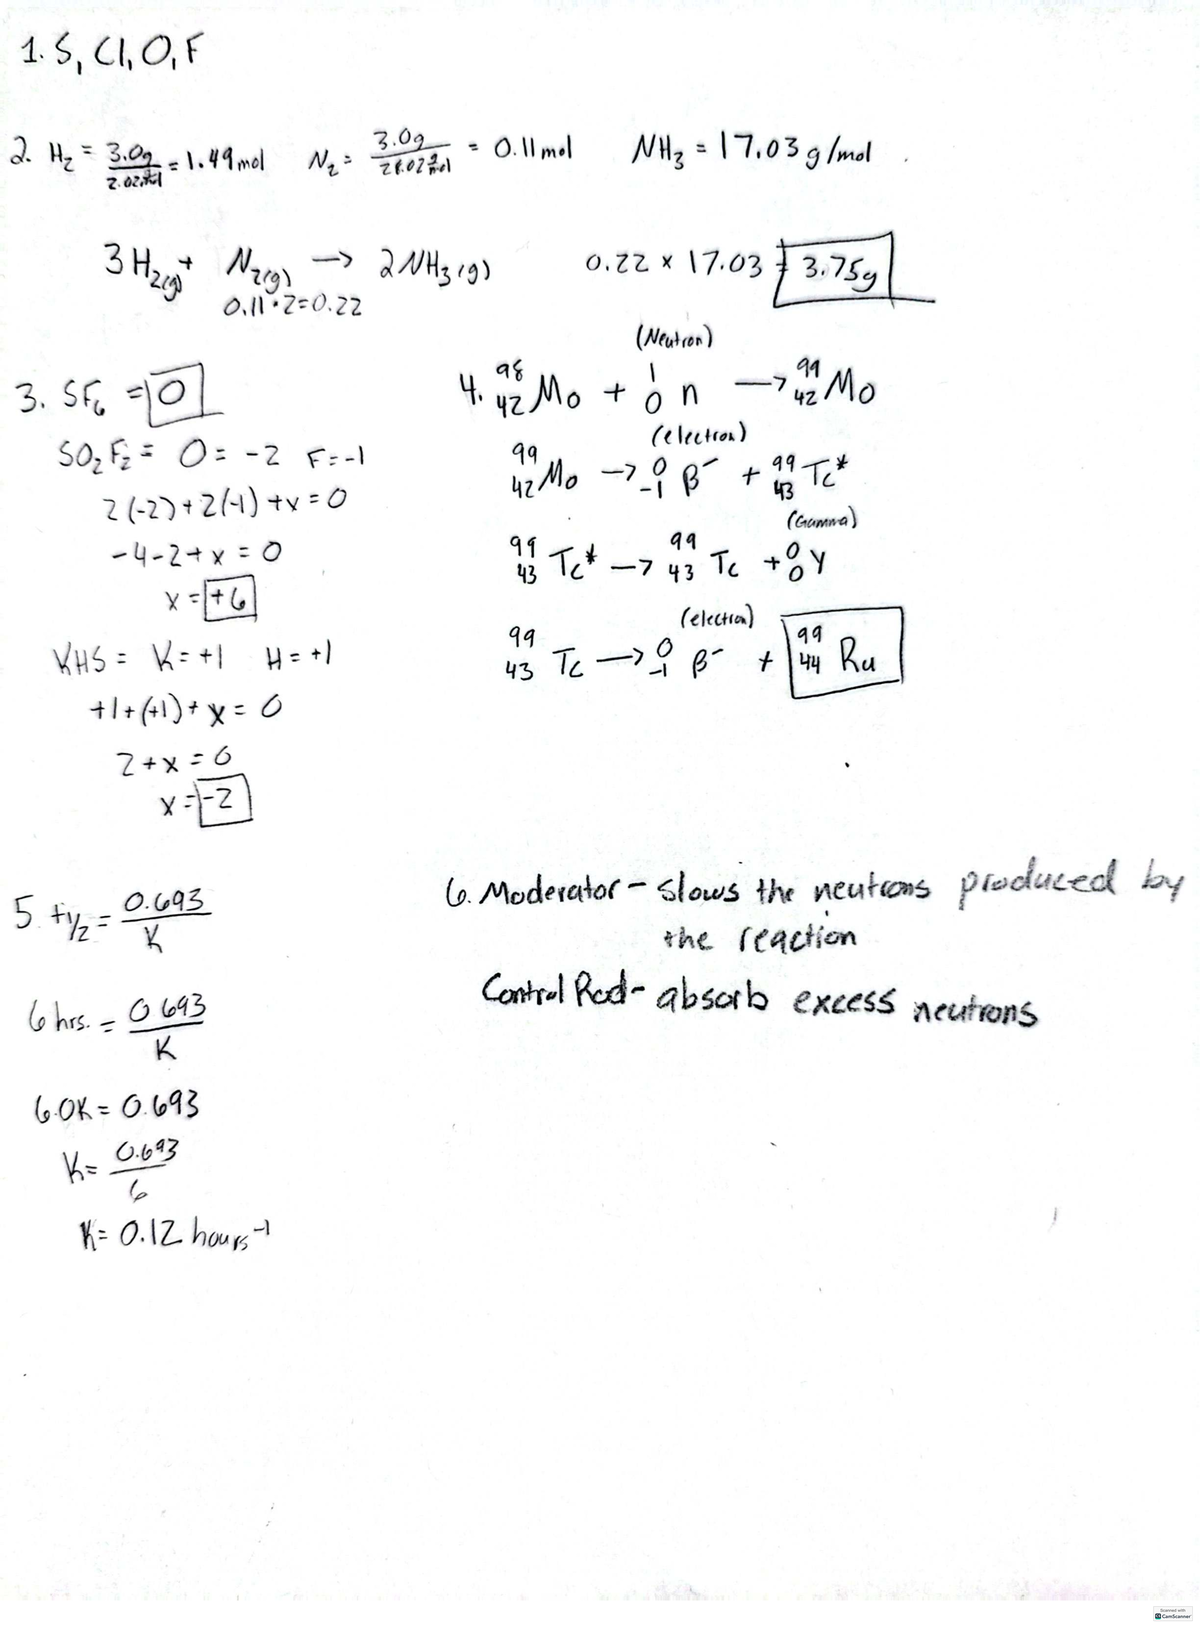 1. S, Cl, O, F
2. H₂ = 3.0g / 2.02 g/mol = 1.49 mol N₂ = 3.0g / 28.02 g/mol = 0.11 mol NH₃ = 17.03 g/mol
3 H₂(g) + N₂(g) → 2 NH₃(g) 0.22 × 17.03 = 3.75g
0.11 · 2 = 0.22
3. SF₆ = 0
SO₂F₂ = O = -2 F = -1
2(-2) + 2(-1) + x = 0
-4 - 2 + x = 0
x = +6
KHS = K = +1 H = +1
+1 + (+1) + x = 0
2 + x = 0
x = -2
(Neutron)
4. ⁹⁸₄₂Mo + ¹₀n → ⁹⁹₄₂Mo
(electron)
⁹⁹₄₂Mo → ⁰₋₁β⁻ + ⁹⁹₄₃Tc*
(Gamma)
⁹⁹₄₃Tc* → ⁹⁹₄₃Tc + ⁰₀γ
(electron)
⁹⁹₄₃Tc → ⁰₋₁β⁻ + ⁹⁹₄₄Ru
5. t½ = 0.693 / K
6 hrs. = 0.693 / K
6.0K = 0.693
K = 0.693 / 6
K = 0.12 hours⁻¹
6. Moderator - slows the neutrons produced by
the reaction
Control Rod - absorb excess neutrons
Scanned with
CS CamScanner